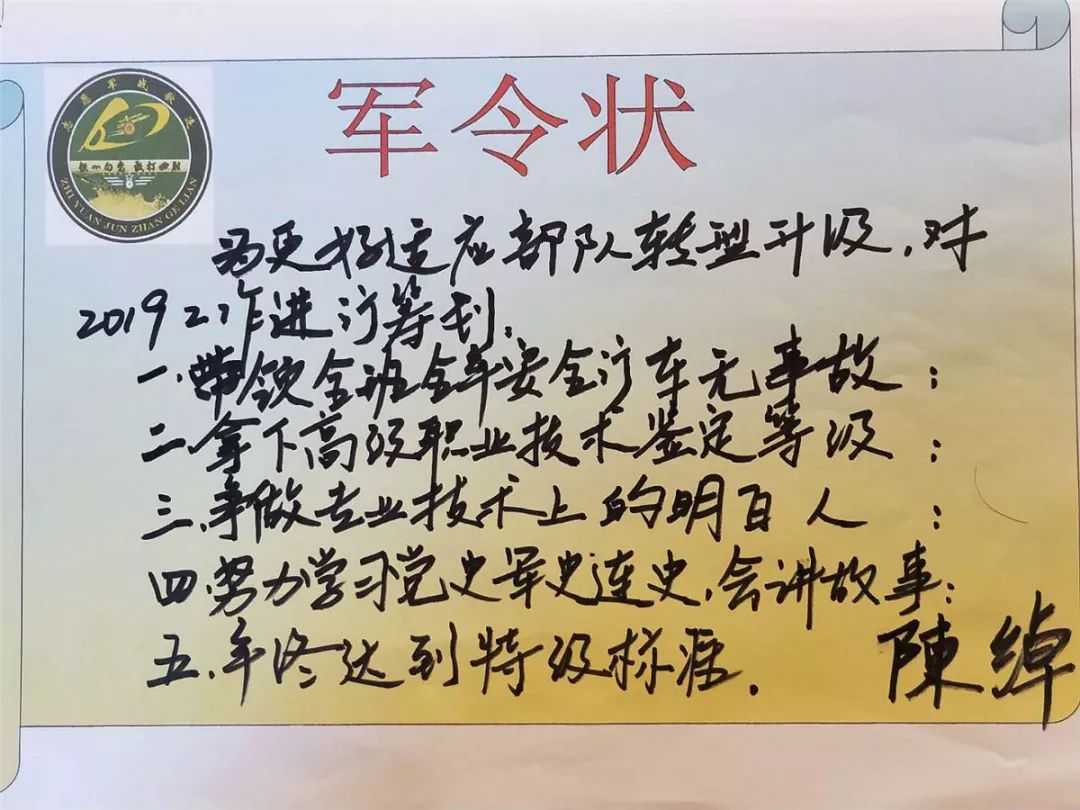 军令状
志愿军战歌连
铁心向党 敢打必胜
ZHI YUAN JUN ZHAN GE LIAN
为更好适应部队转型升级，对
2019工作进行筹划：
一.带领全班全年安全行车无事故；
二.拿下高级职业技术鉴定等级；
三.争做专业技术上的明白人；
四.努力学习党史军史连史，会讲故事；
五.年终达到特级标准.
陳綽